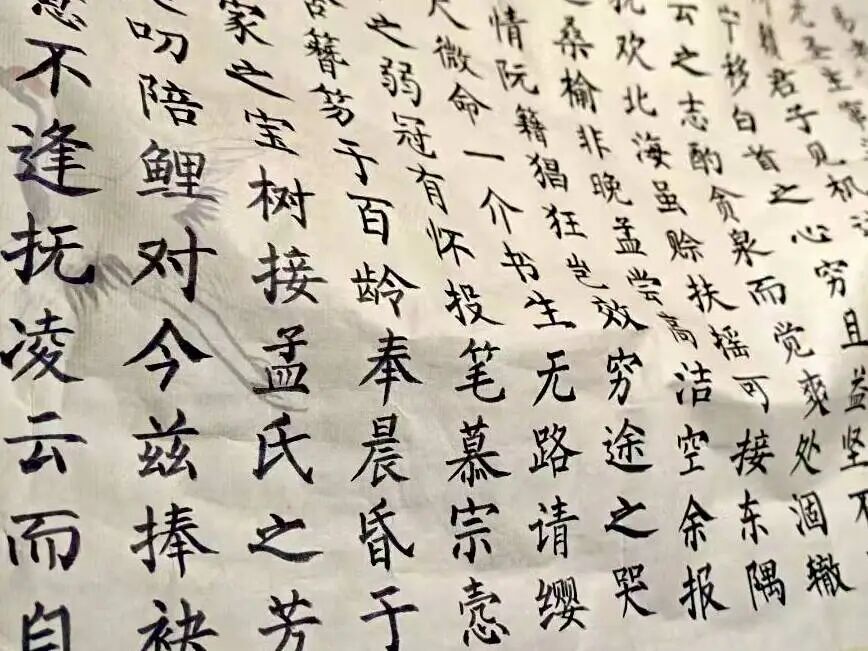 无圣主
赖君子见机
宁移白首之心穷且益坚不
云之志酌贪泉而觉爽处涸辙
欢北海虽赊扶摇可接东隅
桑榆非晚孟尝高洁空余报
情阮籍猖狂岂效穷途之哭
尺微命一介书生无路请缨
之弱冠有怀投笔慕宗悫
簪笏于百龄奉晨昏于
家之宝树接孟氏之芳
叨陪鲤对今兹捧袂
意不逢抚凌云而自